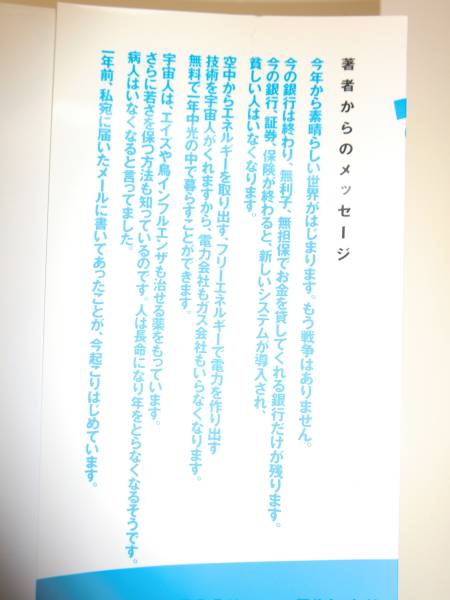 著者からのメッセージ
今年から素晴らしい世界がはじまります。もう戦争はありません。
今の銀行は終わり、無利子、無担保でお金を貸してくれる銀行だけが残ります。
今の銀行、証券、保険が終わると、新しいシステムが導入され、
貧しい人はいなくなります。
空中からエネルギーを取り出す、フリーエネルギーで電力を作り出す
技術を宇宙人がくれますから、電力会社もガス会社もいらなくなります。
無料で一年中光の中で暮らすことができます。
宇宙人は、エイズや鳥インフルエンザも治せる薬をもっています。
さらに若さを保つ方法も知っているのです。人は長命になり年をとらなくなるそうです。
病人はいなくなると言ってました。
一年前、私宛に届いたメールに書いてあったことが、今起こりはじめています。